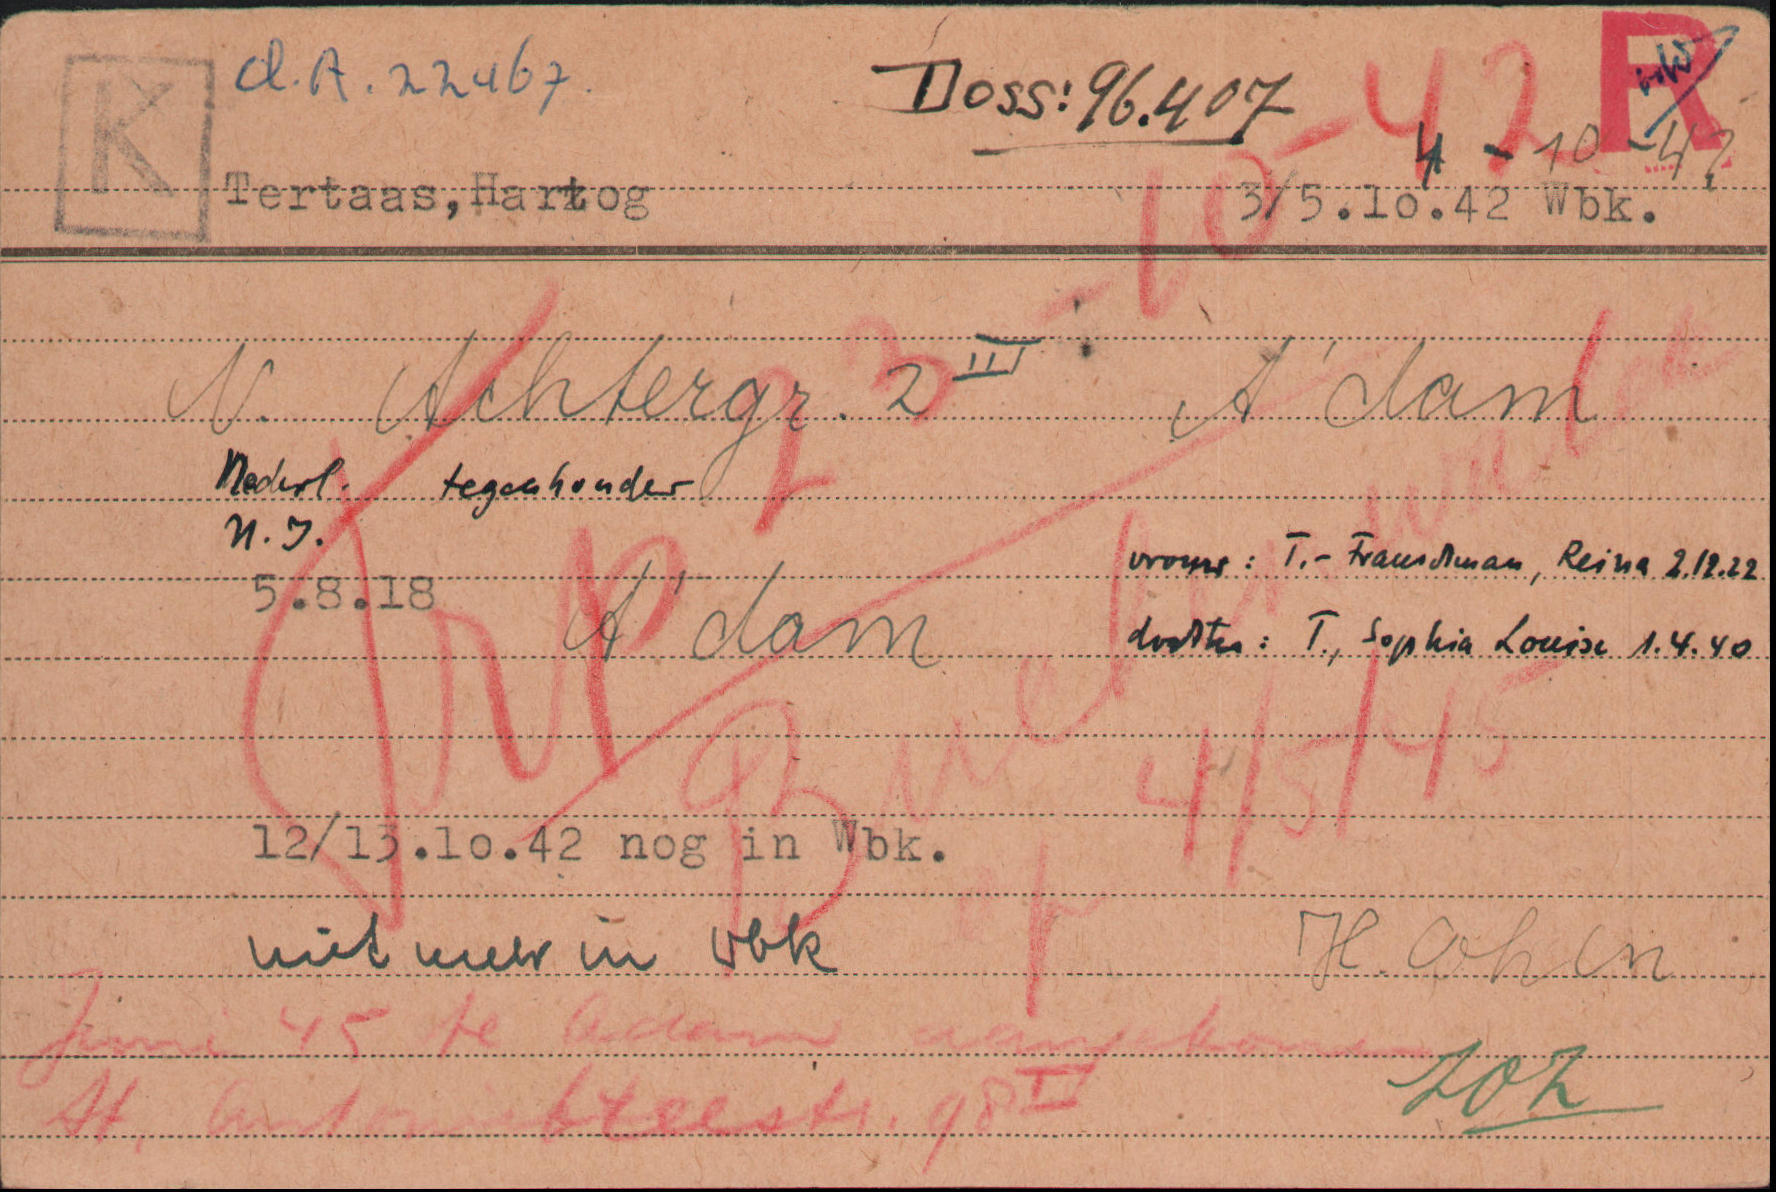 K
d.A. 22467.
Doss: 96.407
R
4-10-42
Tertaas, Hartog
3/5.10.42 Wbk.
23-10-42
N. Achtergr. 2 III A'dam
Nederl.
N.I.
5.8.18 A'dam
vrouw: T.- Franschman, Reina 2.12.22
dochter: T., Sophia Louise 1.4.40
Buchenwald
op 4/5/45
12/13.10.42 nog in Wbk.
niet meer in Wbk
Juni 45 te Adam aangekomen
St. Antoniebreestr. 98 II